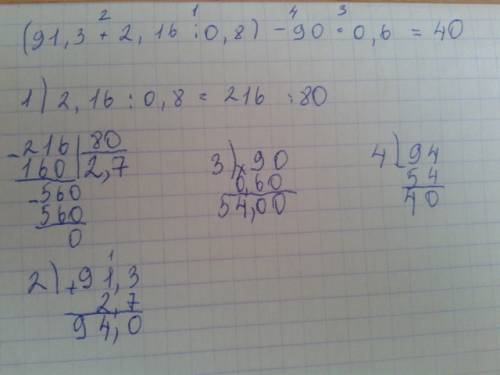 2 1 4 3
(91,3 + 2,16 : 0,8) - 90 · 0,6 = 40
1) 2,16 : 0,8 = 216 : 80
- 216 | 80
160 | 2,7
- 560
560
0
3) × 90
0,60
54,00
4) 94
54
40
1
2) + 91,3
2,7
94,0